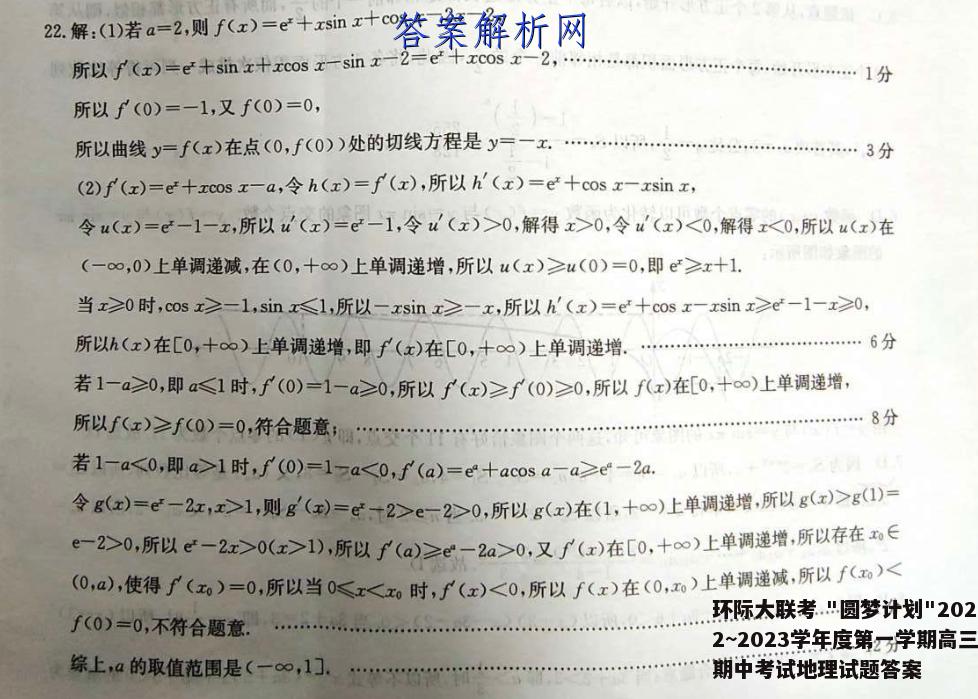 22.解:(1)若a=2,则 f(x)=eˣ+xsin x+cos x-2x-2,
答案解析网
所以 f′(x)=eˣ+sin x+xcos x-sin x-2=eˣ+xcos x-2, …… 1分
所以 f′(0)=-1,又 f(0)=0,
所以曲线 y=f(x)在点(0,f(0))处的切线方程是 y=-x. …… 3分
(2)f′(x)=eˣ+xcos x-a,令 h(x)=f′(x),所以 h′(x)=eˣ+cos x-xsin x,
令 u(x)=eˣ-1-x,所以 u′(x)=eˣ-1,令 u′(x)>0,解得 x>0,令 u′(x)<0,解得 x<0,所以 u(x)在
(-∞,0)上单调递减,在(0,+∞)上单调递增,所以 u(x)≥u(0)=0,即 eˣ≥x+1.
当 x≥0 时,cos x≥-1,sin x≤1,所以-xsin x≥-x,所以 h′(x)=eˣ+cos x-xsin x≥eˣ-1-x≥0,
所以h(x)在[0,+∞)上单调递增,即 f′(x)在[0,+∞)上单调递增. …… 6分
若 1-a≥0,即 a≤1 时,f′(0)=1-a≥0,所以 f′(x)≥f′(0)≥0,所以 f(x)在[0,+∞)上单调递增,
所以f(x)≥f(0)=0,符合题意; …… 8分
若 1-a<0,即 a>1 时,f′(0)=1-a<0,f′(a)=eᵃ+acos a-a≥eᵃ-2a.
令 g(x)=eˣ-2x,x>1,则 g′(x)=eˣ-2>e-2>0,所以 g(x)在(1,+∞)上单调递增,所以 g(x)>g(1)=
e-2>0,所以 eˣ-2x>0(x>1),所以 f′(a)≥eᵃ-2a>0,又 f′(x)在[0,+∞)上单调递增,所以存在 x₀∈
(0,a),使得 f′(x₀)=0,所以当 0≤x<x₀ 时,f′(x)<0,所以 f(x)在(0,x₀)上单调递减,所以 f(x₀)<
f(0)=0,不符合题意. ……
综上,a 的取值范围是(-∞,1]. …… 12分
环际大联考 "圆梦计划"202
2~2023学年度第一学期高三
期中考试地理试题答案